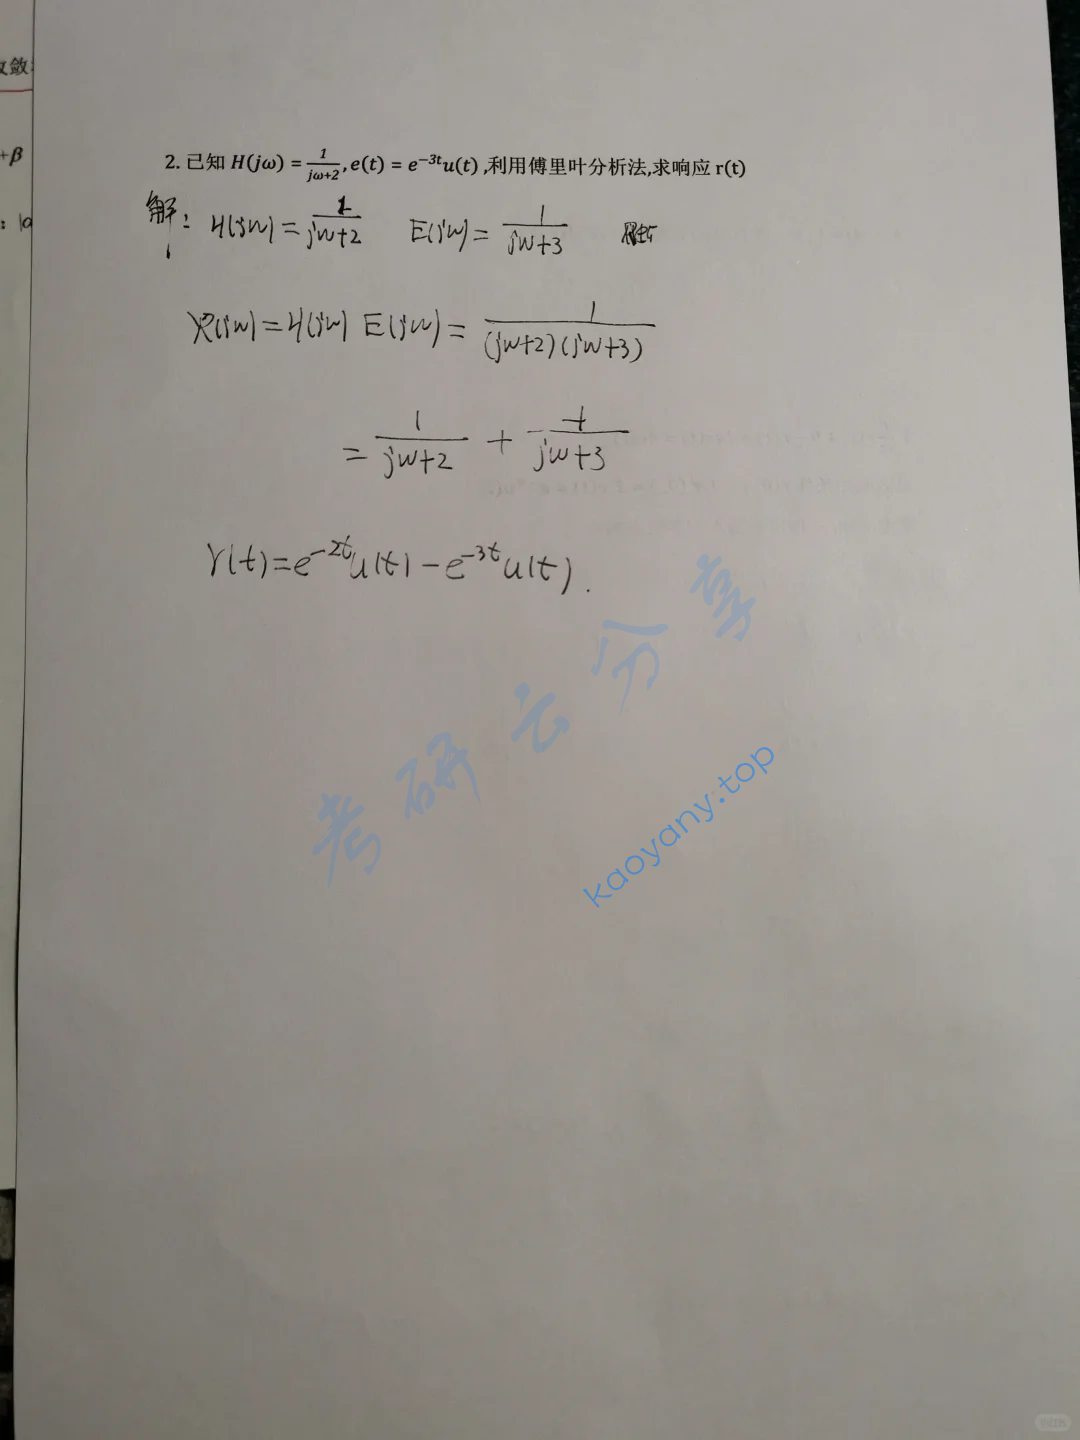 敛
+β
2. 已知 H(jω) = 1/(jω+2), e(t) = e^{-3t}u(t) ,利用傅里叶分析法,求响应 r(t)
解: H(jw) = 1/(jw+2) E(jw) = 1/(jw+3)
R(jw) = H(jw) E(jw) = 1/((jw+2)(jw+3))
= 1/(jw+2) + -1/(jw+3)
r(t) = e^{-2t}u(t) - e^{-3t}u(t).
考研云分享
kaoyany.top